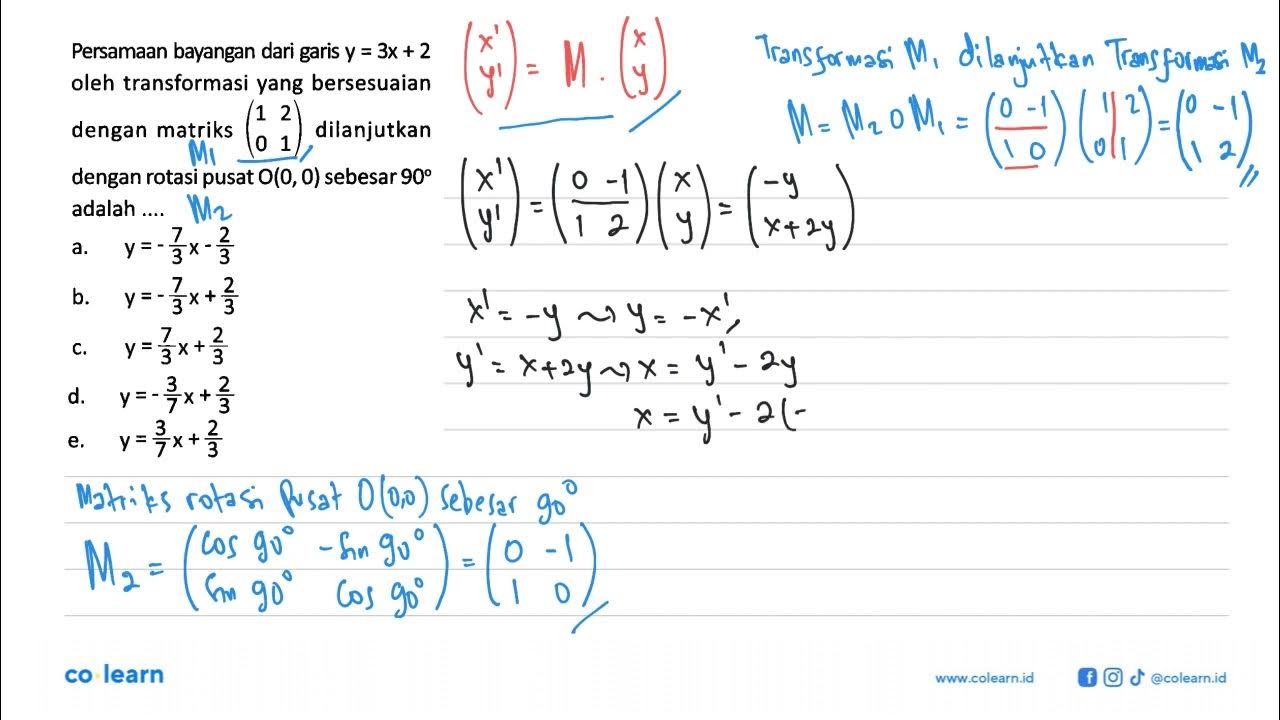 Persamaan bayangan dari garis y = 3x + 2
oleh transformasi yang bersesuaian
dengan matriks (1 2 / 0 1) dilanjutkan
M₁
dengan rotasi pusat O(0, 0) sebesar 90º
adalah .... M₂
a. y = -7/3 x - 2/3
b. y = -7/3 x + 2/3
c. y = 7/3 x + 2/3
d. y = -3/7 x + 2/3
e. y = 3/7 x + 2/3
(x' / y') = M . (x / y)
Transformasi M₁ dilanjutkan Transformasi M₂
M = M₂ o M₁ = (0 -1 / 1 0) (1 2 / 0 1) = (0 -1 / 1 2)
(x' / y') = (0 -1 / 1 2) (x / y) = (-y / x+2y)
x' = -y ⤳ y = -x'
y' = x+2y ⤳ x = y' - 2y
x = y' - 2(-
Matriks rotasi Pusat O(0,0) sebesar 90°
M₂ = (cos 90° -sin 90° / sin 90° cos 90°) = (0 -1 / 1 0)
co·learn
www.colearn.id
@colearn.id